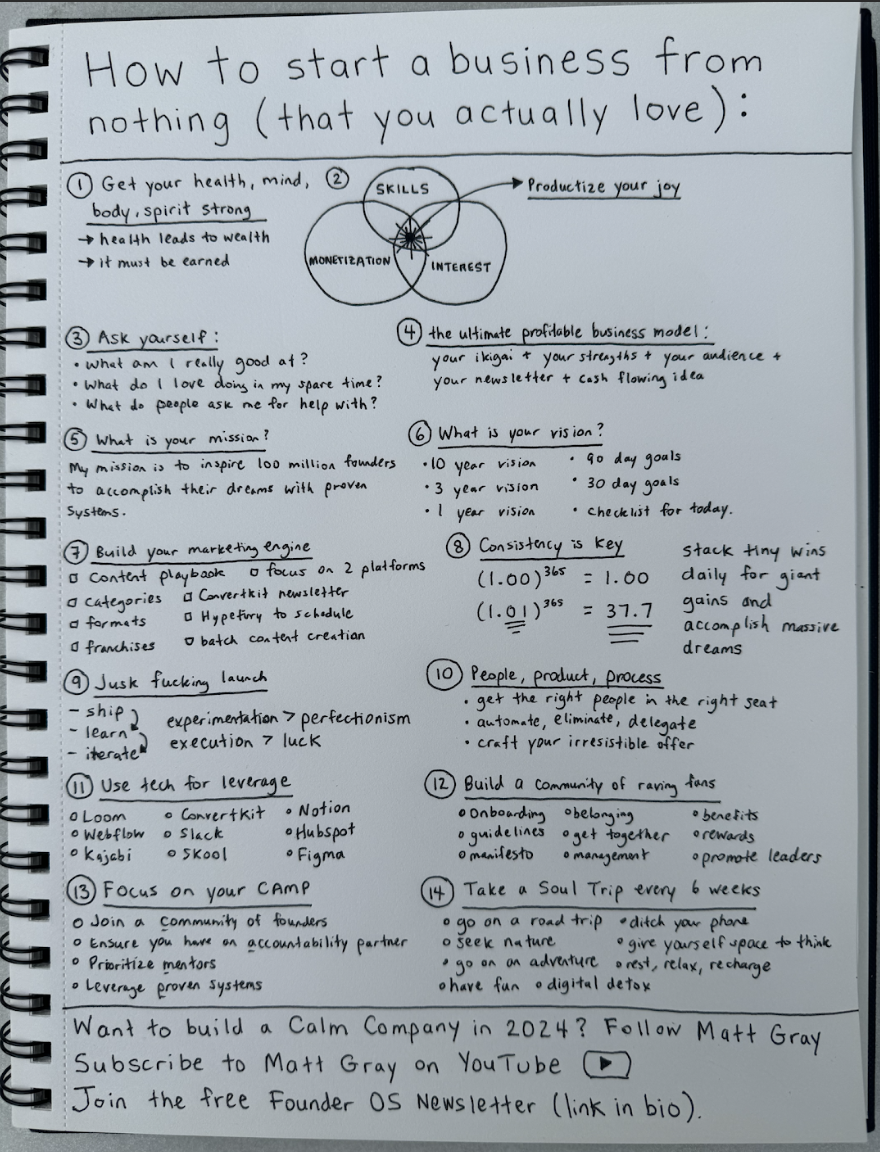 How to start a business from
nothing (that you actually love):
① Get your health, mind,
body, spirit strong
→ health leads to wealth
→ it must be earned
②
SKILLS
MONETIZATION
INTEREST
Productize your joy
③ Ask yourself:
• What am I really good at?
• What do I love doing in my spare time?
• What do people ask me for help with?
④ the ultimate profitable business model:
your ikigai + your strengths + your audience +
your newsletter + cash flowing idea
⑤ What is your mission?
My mission is to inspire 100 million founders
to accomplish their dreams with proven
systems.
⑥ What is your vision?
• 10 year vision
• 3 year vision
• 1 year vision
• 90 day goals
• 30 day goals
• checklist for today.
⑦ Build your marketing engine
□ content playbook □ focus on 2 platforms
□ categories □ Convertkit newsletter
□ formats □ Hypefury to schedule
□ franchises □ batch content creation
⑧ Consistency is key
(1.00)^365 = 1.00
(1.01)^365 = 37.7
stack tiny wins
daily for giant
gains and
accomplish massive
dreams
⑨ Jusk fucking launch
- ship
- learn
- iterate
experimentation > perfectionism
execution > luck
⑩ People, product, process
• get the right people in the right seat
• automate, eliminate, delegate
• craft your irresistible offer
⑪ Use tech for leverage
○ Loom ○ Convertkit ○ Notion
○ Webflow ○ Slack ○ Hubspot
○ Kajabi ○ Skool ○ Figma
⑫ Build a community of raving fans
○ Onboarding ○ belonging ○ benefits
○ guidelines ○ get together ○ rewards
○ manifesto ○ management ○ promote leaders
⑬ Focus on your CAMP
○ Join a community of founders
○ Ensure you have an accountability partner
○ Prioritize mentors
○ Leverage proven systems
⑭ Take a Soul Trip every 6 weeks
○ go on a road trip ○ ditch your phone
○ seek nature ○ give yourself space to think
○ go on an adventure ○ rest, relax, recharge
○ have fun ○ digital detox
Want to build a Calm Company in 2024? Follow Matt Gray
Subscribe to Matt Gray on YouTube
Join the free Founder OS Newsletter (link in bio).